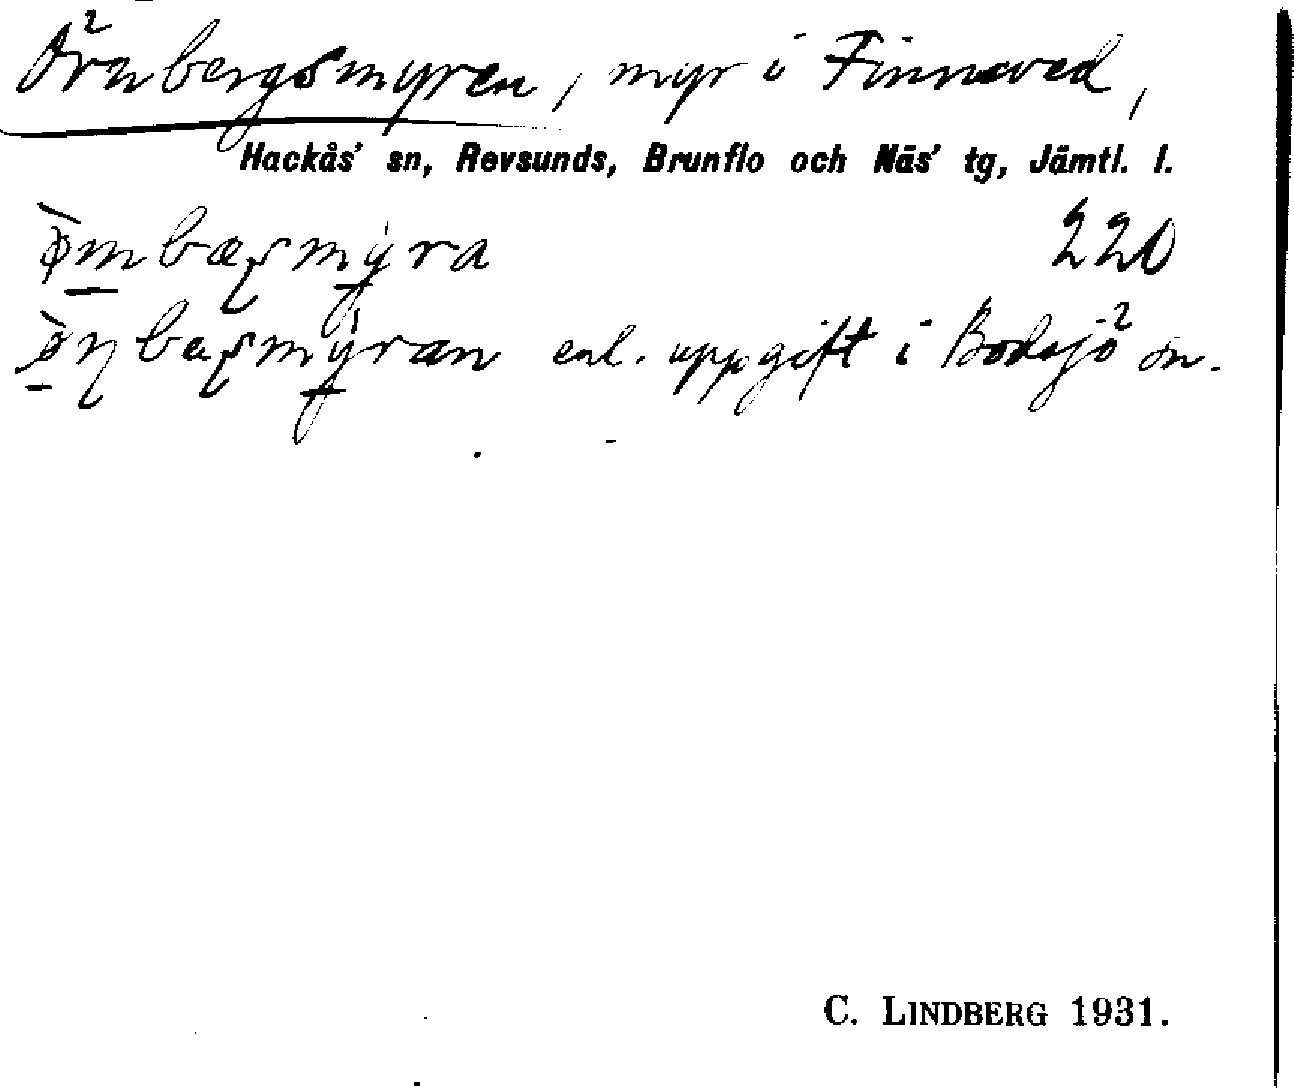 Örnbergsmyren, myr i Finnæved,
Hackås' sn, Revsunds, Brunflo och Näs' tg, Jämtl. l.
220
enl. uppgift i Bodsjö sn.
C. LINDBERG 1931.